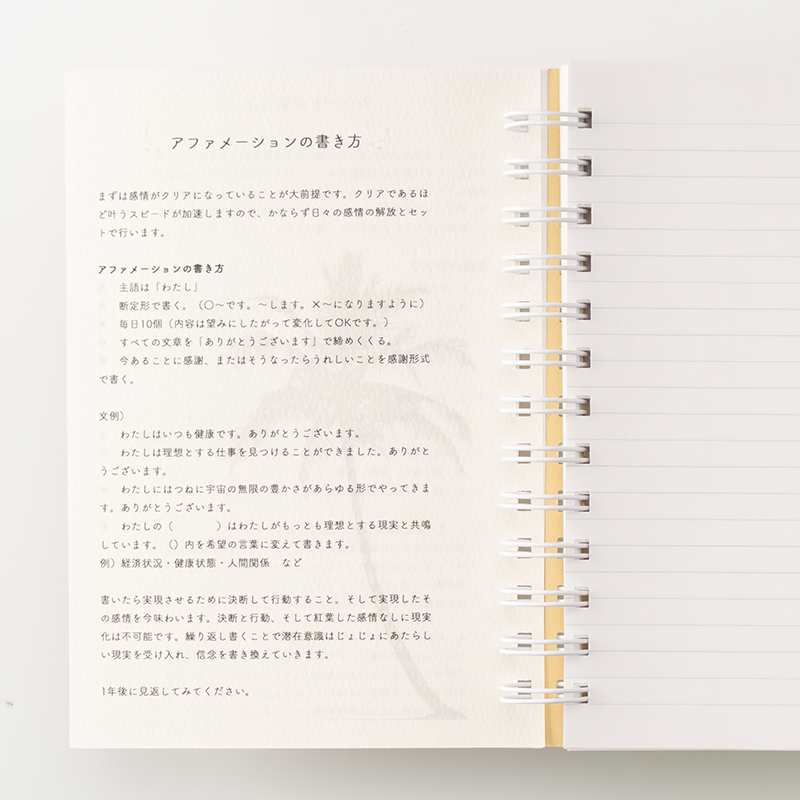 アファメーションの書き方
まずは感情がクリアになっていることが大前提です。クリアであるほ
ど叶うスピードが加速しますので、かならず日々の感情の解放とセッ
トで行います。
アファメーションの書き方
主語は「わたし」
断定形で書く。（〇～です。～します。×～になりますように）
毎日10個（内容は望みにしたがって変化してOKです。）
すべての文章を「ありがとうございます」で締めくくる。
今あることに感謝、またはそうなったらうれしいことを感謝形式
で書く。
文例）
わたしはいつも健康です。ありがとうございます。
わたしは理想とする仕事を見つけることができました。ありがと
うございます。
わたしにはつねに宇宙の無限の豊かさがあらゆる形でやってきま
す。ありがとうございます。
わたしの（　　　　）はわたしがもっとも理想とする現実と共鳴
しています。（）内を希望の言葉に変えて書きます。
例）経済状況・健康状態・人間関係　など
書いたら実現させるために決断して行動すること。そして実現したそ
の感情を今味わいます。決断と行動、そして紅葉した感情なしに現実
化は不可能です。繰り返し書くことで潜在意識はじょじょにあたらし
い現実を受け入れ、信念を書き換えていきます。
1年後に見返してみてください。